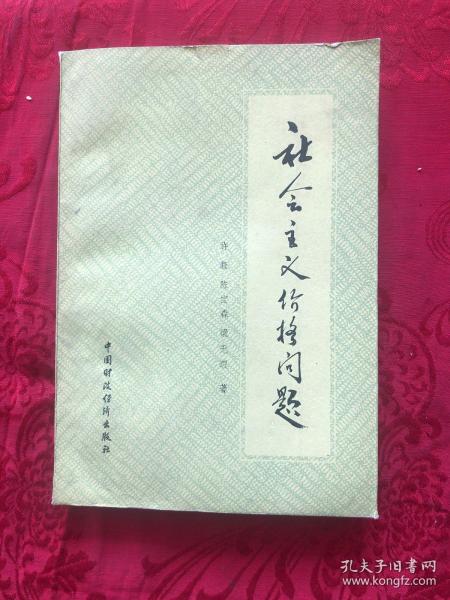 社会主义价格问题
许毅 陈宝森 梁无瑕 著
中国财政经济出版社
孔夫子旧书网
www.kongfz.com